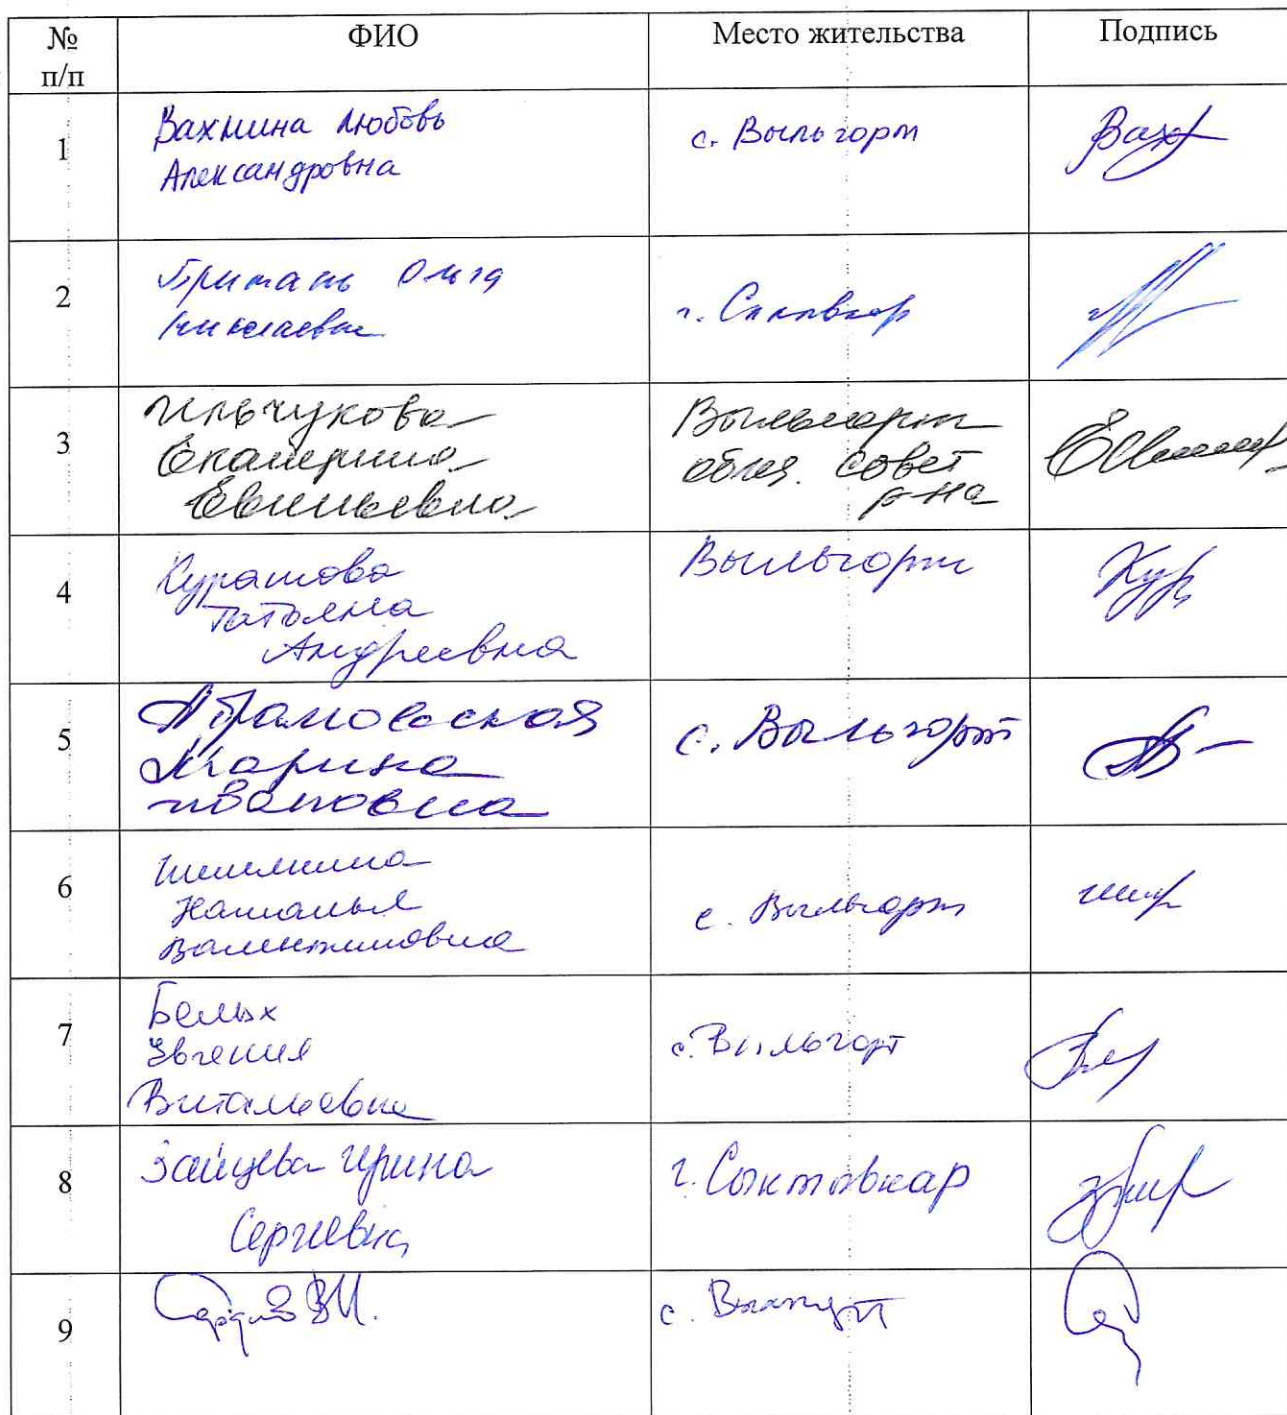 № п/п ФИО Место жительства Подпись
1 Вахнина Любовь Александровна с. Выльгорт Вах
2 Ольга Николаевна г. Сыктывкар
3 Ильчукова Екатерина Евгеньевна Выльгорт общ. совет р-на
4 Курашова Татьяна Андреевна Выльгорт Кур
5 Абрамовская Марина Ивановна с. Выльгорт
6 Наталья Валентиновна с. Выльгорт
7 Белых Евгения Витальевна с. Выльгорт
8 Зайцева Ирина Сергеевна г. Сыктывкар
9 В.И. с.